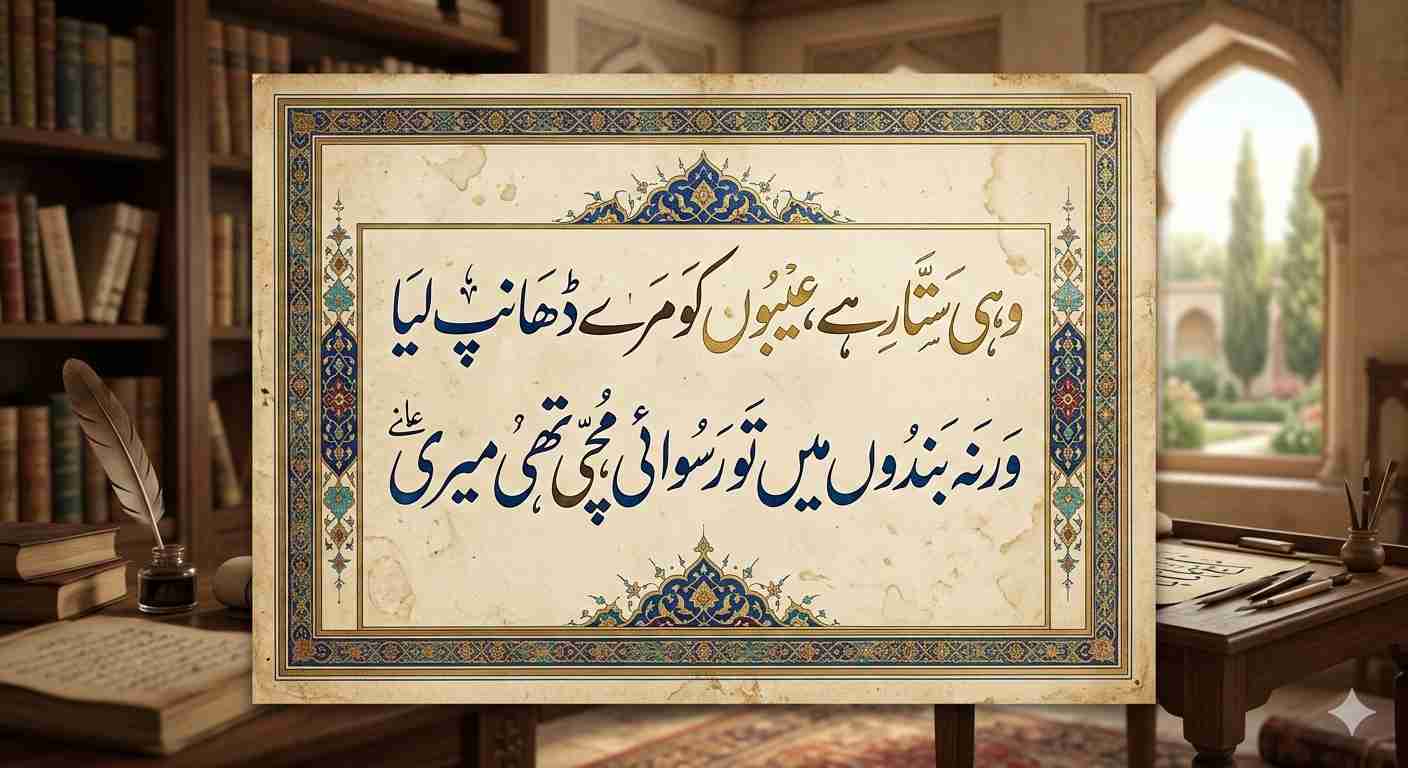 وہی سَتَّارِ ہے، عَیْبُوں کَو مَرَے ڈھَانپ لیَا
وَرنَہ بَندُوں میں تَو رَسُوائی مُچّی تھی میری